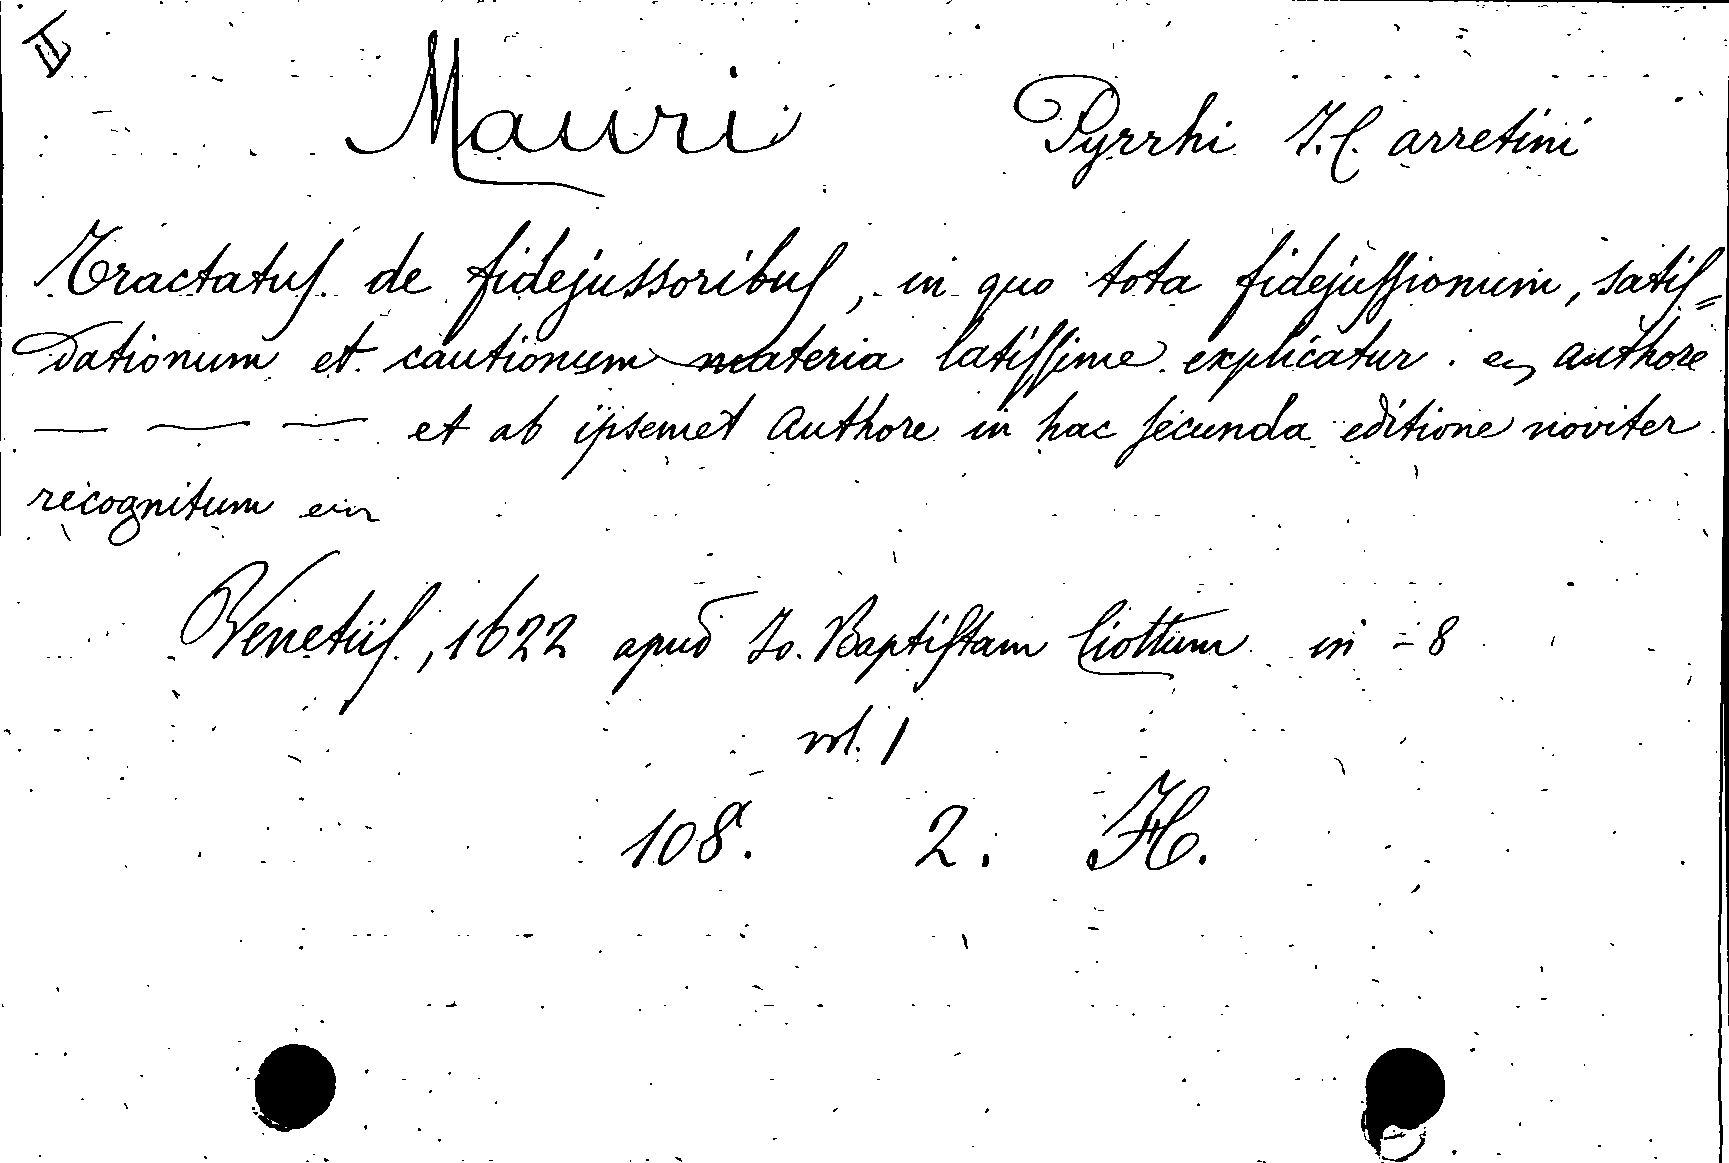 II
Mauri Pyrrhi J.C. arretini
Tractatus de fidejussoribus, in quo tota fidejussionum, satis=
dationum et cautionum materia latissime explicatur. authore
— — — et ab ipsemet authore in hac secunda editione noviter
recognitum
Venetiis, 1622 apud Jo. Baptistam Ciottum in -8
vol. 1
108. 2. H.